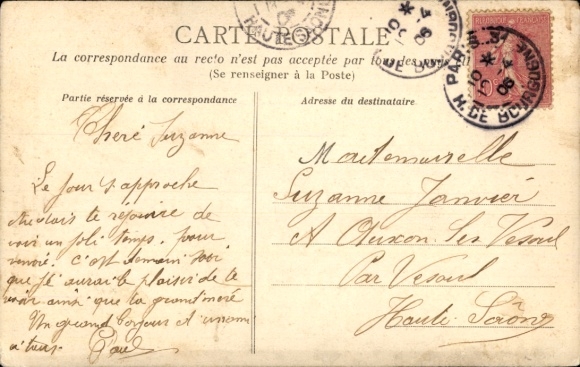 CARTE POSTALE
La correspondance au recto n'est pas acceptée par tous les pays
(Se renseigner à la Poste)
Partie réservée à la correspondance
Adresse du destinataire
REPUBLIQUE FRANÇAISE
H. DE BOURGOGNE
Cheré Suzanne
Le jour s'approche
te rejouire de
voir un joli temps. pour
c'est demain soir
que J'é aurai le plaisir de te
voir ainsi que ta grand meré
Un grand bonjour et un ami
a tous. Paul
Mademoiselle
Suzanne Janvier
A Auxon Les Vesoul
Par Vesoul
Haute Saône